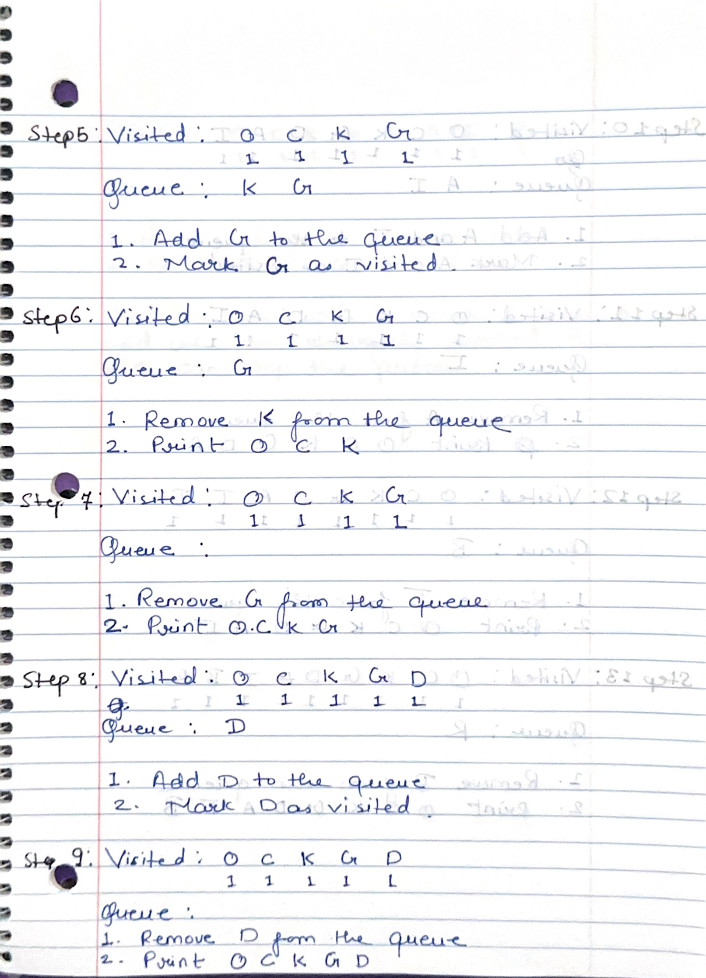 Step5: Visited: O C K G
1 1 1 1
Queue: K G
1. Add G to the queue
2. Mark G as visited.
Step6: Visited: O C K G
1 1 1 1
Queue: G
1. Remove K from the queue
2. Print O C K
Step 7: Visited: O C K G
1 1 1 1
Queue:
1. Remove G from the queue
2. Print O.C K G
Step 8: Visited: O C K G D
1 1 1 1 1
Queue: D
1. Add D to the queue
2. Mark D as visited.
Step 9: Visited: O C K G D
1 1 1 1 1
Queue:
1. Remove D from the queue
2. Print O C K G D